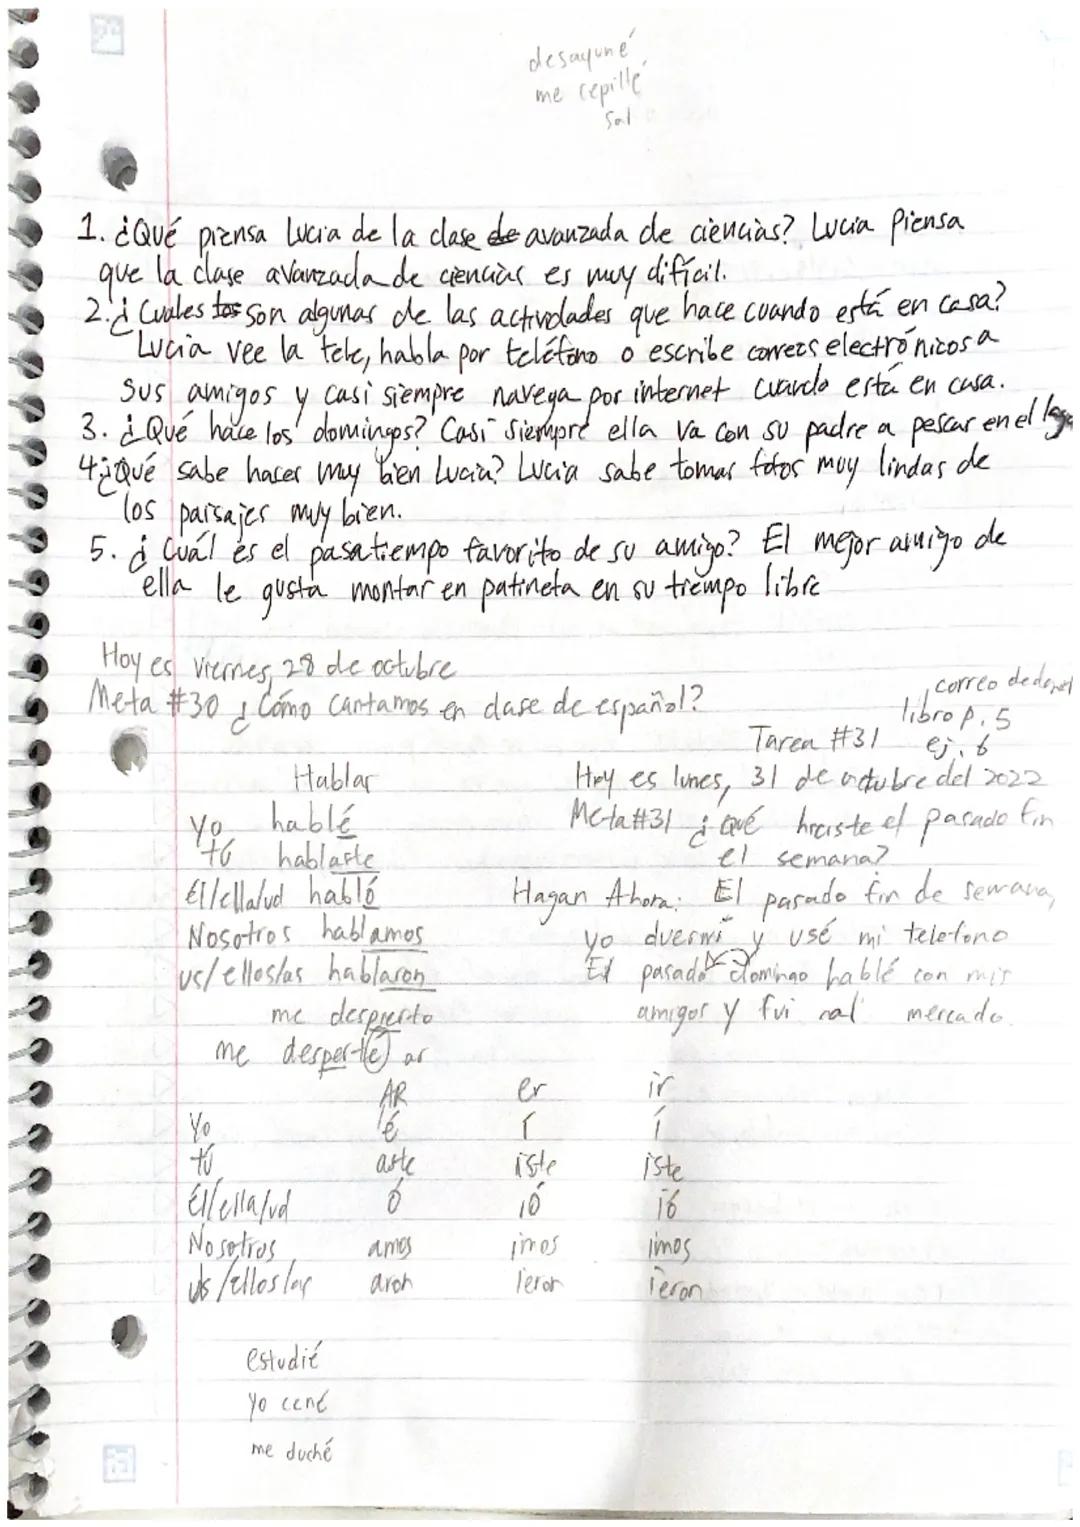 desayuné
me cepillé
sal
1. ¿Qué piensa Lucia de la clase de avanzada de ciencias? Lucia Piensa
que la clase avanzada de ciencias es muy difícil.
2. ¿Cuales son algunas de las actividades que hace cuando está en casa?
Lucia vee la tele, habla por teléfono o escribe correos electrónicos a
sus amigos y casi siempre navega por internet cuando está en casa.
3. ¿Qué hace los domingos? Casi siempre ella va con su padre a pescar en el lago
4. ¿Qué sabe hacer muy bien Lucia? Lucia sabe tomar fotos muy lindas de
los paisajes muy bien.
5. ¿Cuál es el pasatiempo favorito de su amigo? El mejor amigo de
ella le gusta montar en patineta en su tiempo libre
Hoy es viernes, 28 de octubre
Meta #30 ¿Cómo cantamos en clase de español?
correo de
libro p. 5
Tarea #31 ej. 6
Hablar
Hoy es lunes, 31 de octubre del 2022
Yo hablé
Meta #31 ¿Qué hiciste el pasado fin
tú hablaste
el semana?
Él/ella/ud habló
Hagan Ahora: El pasado fin de semana,
Nosotros hablamos
yo duermí y usé mi telefono
us/ellos/as hablaron
El pasado domingo hablé con mis
me despierto
amigos y fui al mercado.
me desperté ar
AR er ir
Yo é í í
tú aste iste iste
Él/ella/ud ó ió ió
Nosotros amos imos imos
us/ellos/as aron ieron ieron
estudié
yo cené
me duché